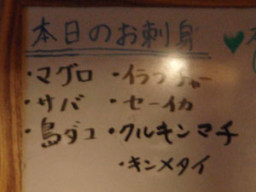 本日のお刺身
・マグロ ・イラブチャー
・サバ ・セーイカ
・島ダコ ・クルキンマチ
・キンメタイ